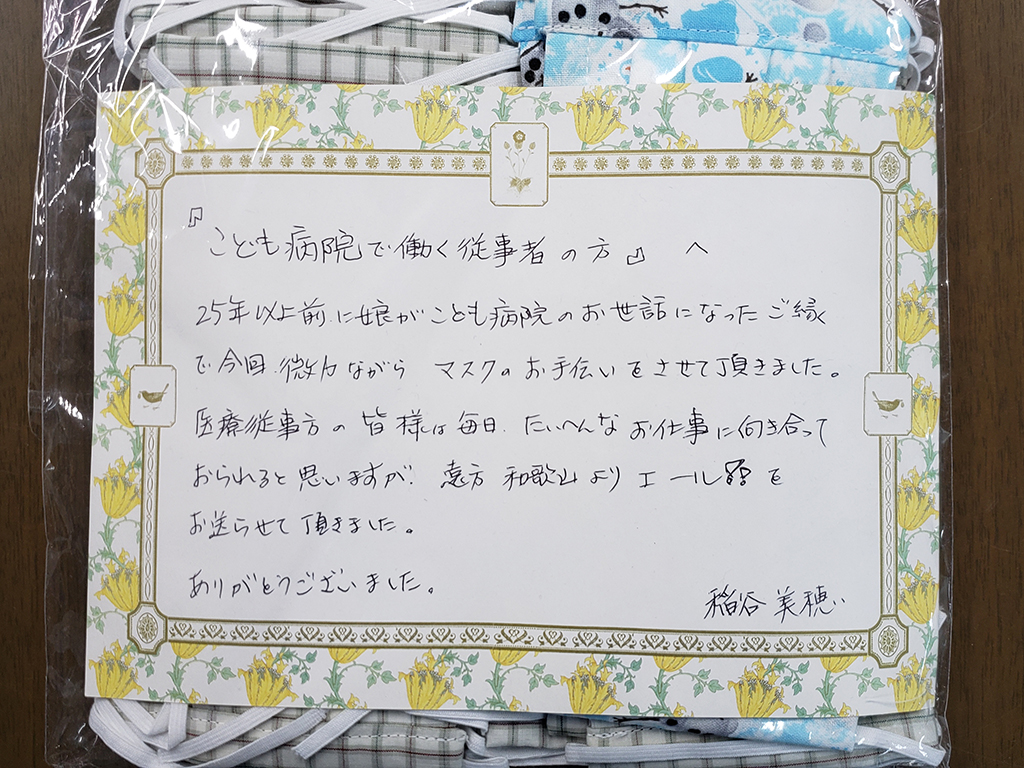 『こども病院で働く従事者の方』 へ
25年以上前に娘がこども病院のお世話になったご縁
で今回微力ながら マスクのお手伝いをさせて頂きました。
医療従事方の皆様は毎日たいへんなお仕事に向き合って
おられると思いますが、 遠方 和歌山よりエールを
お送らせて頂きました。
ありがとうございました。
稲谷 美穂